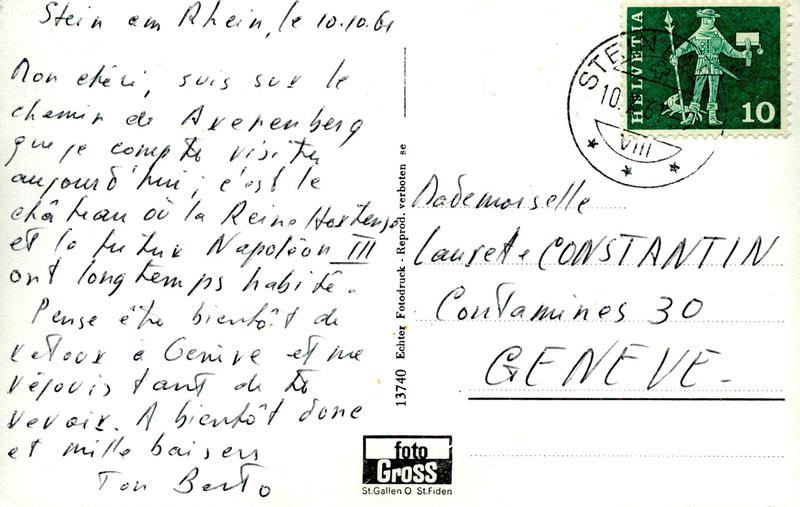 Stein am Rhein, le 10.10.61
Mon chéri, suis sur le
chemin de Arenenberg
que je compte visiter
aujourd'hui; c'est le
château où la Reine Hortense
et le futur Napoléon III
ont longtemps habité.
Pense être bientôt de
retour à Genève et me
réjouis tant de te
revoir. A bientôt donc
et mille baisers
Ton Berto
13740 Echter Fotodruck - Reprod. verboten se
foto
Gross
St.Gallen O St.Fiden
HELVETIA
10
STEIN
10.
VIII
Mademoiselle
Laurete CONSTANTIN
Contamines 30
GENEVE.